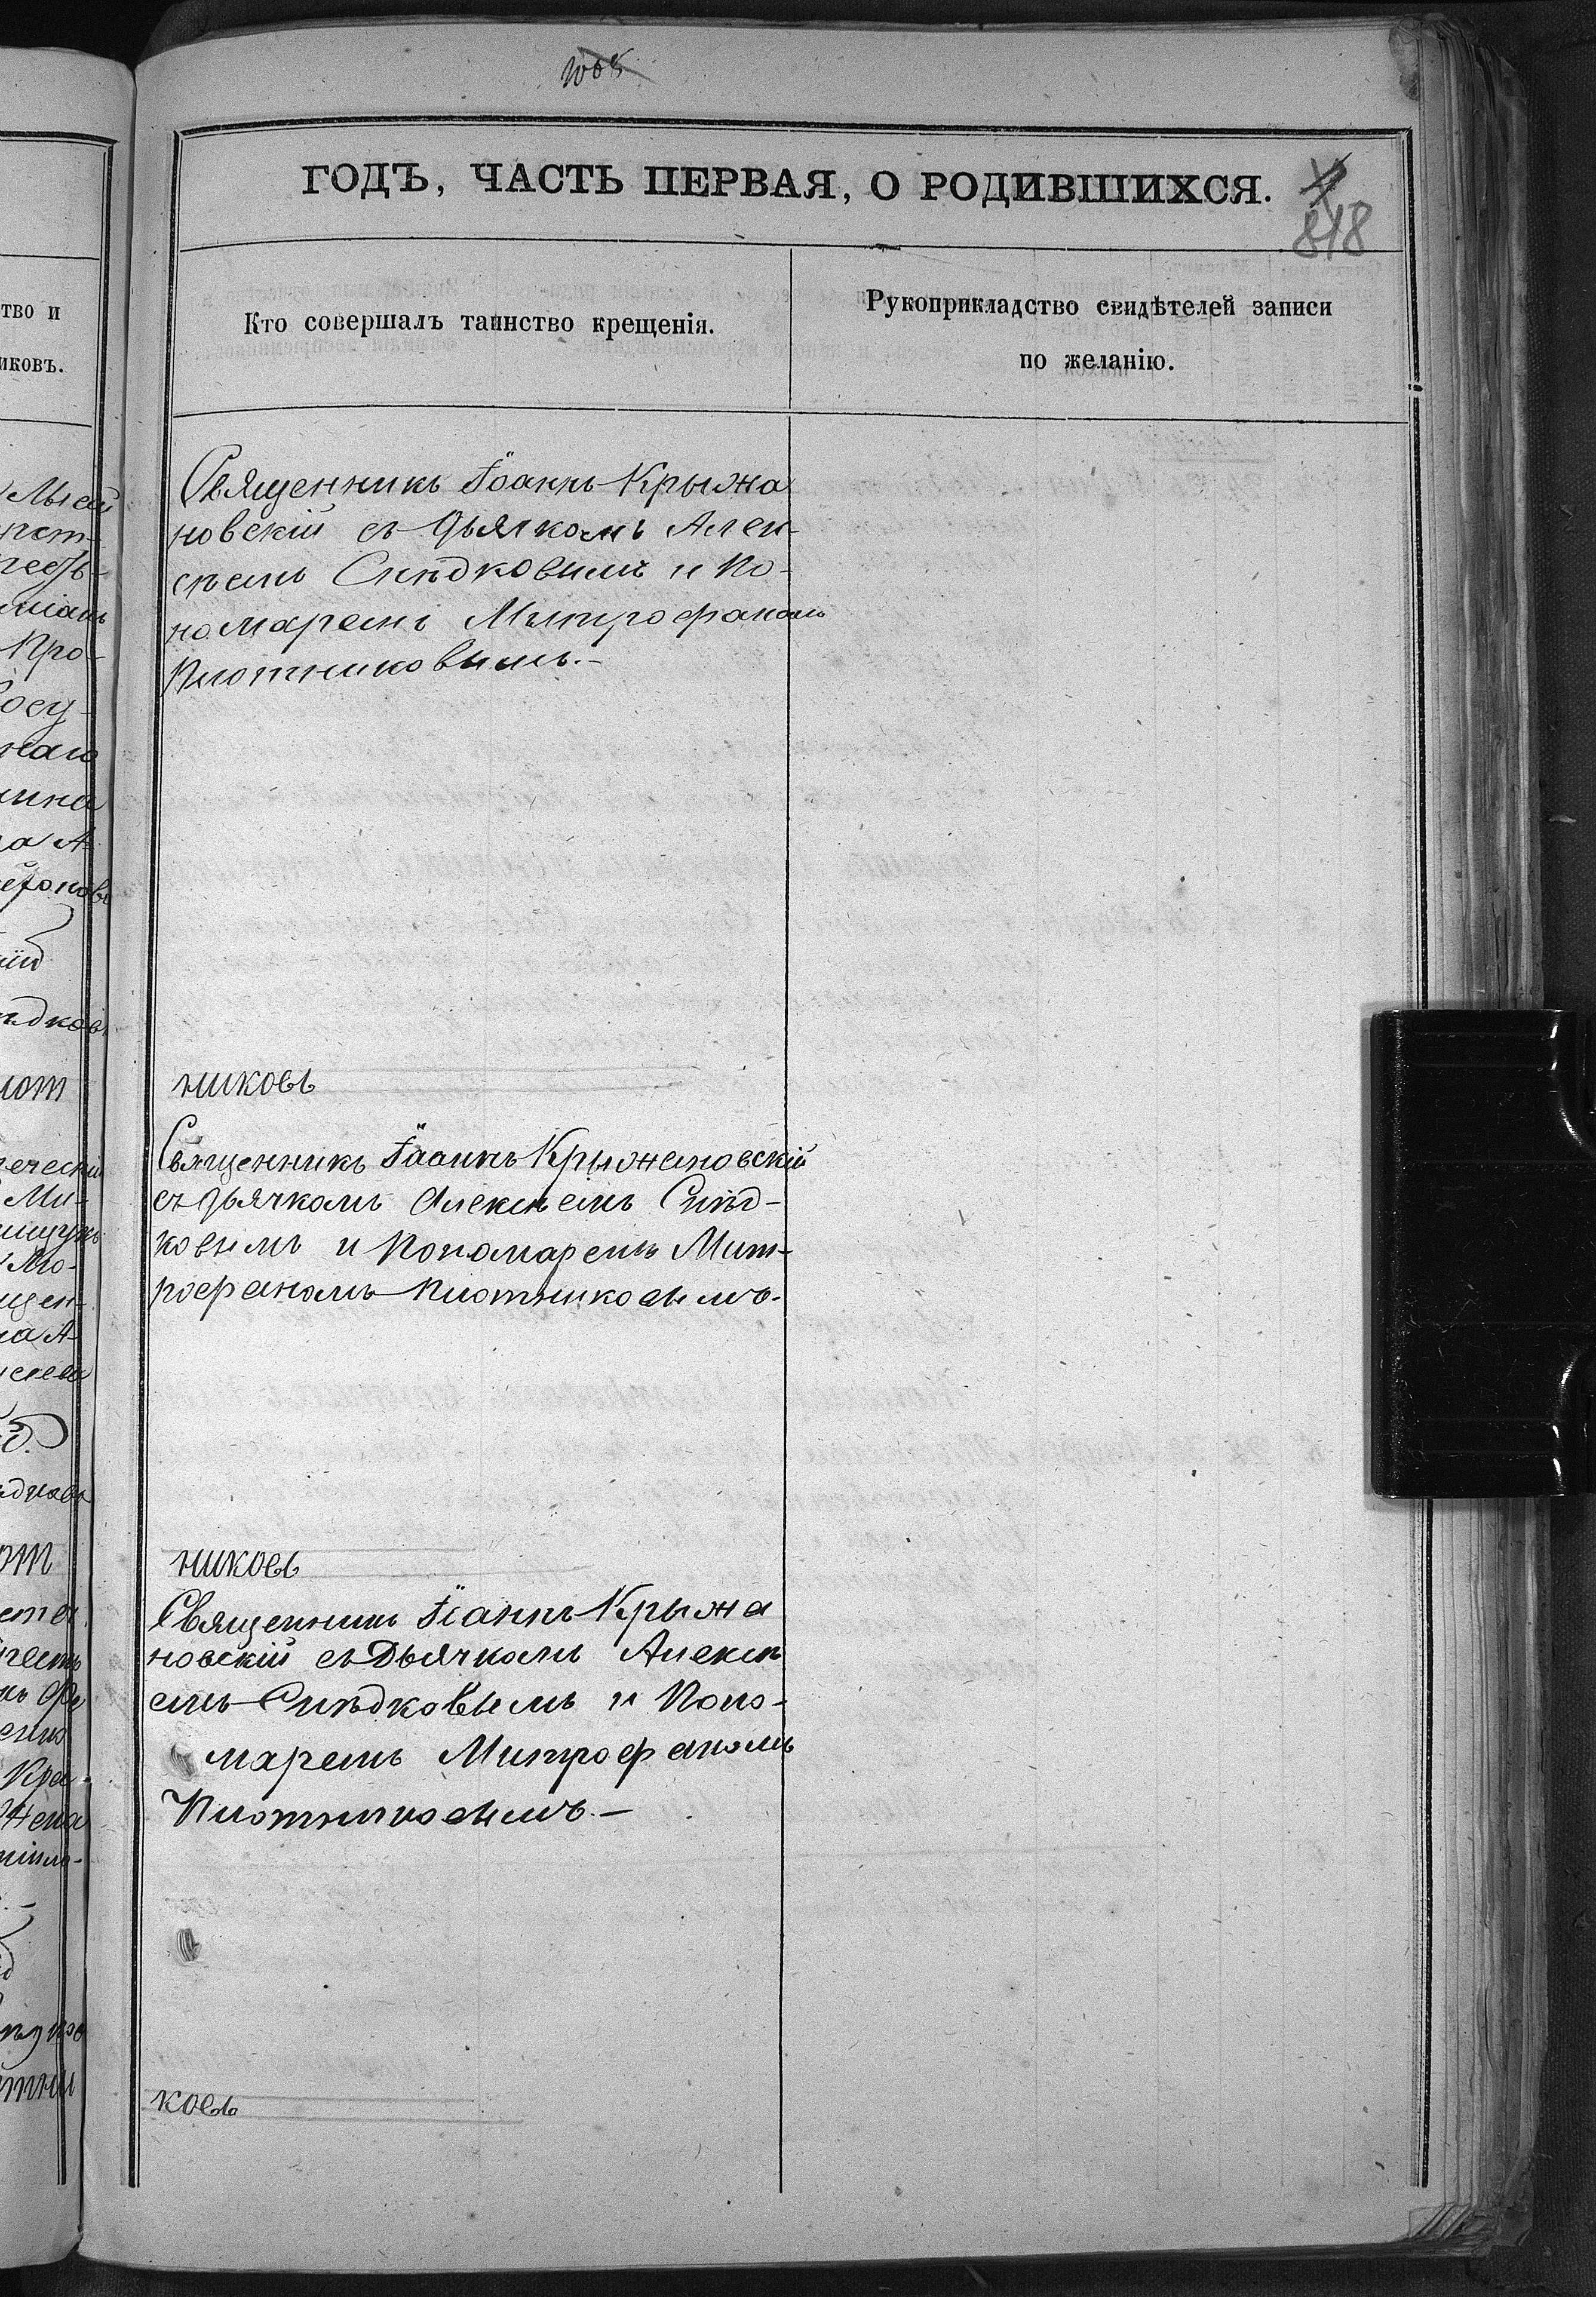 1005
ГОДЪ, ЧАСТЬ ПЕРВАЯ, О РОДИВШИХСЯ.
818
Кто совершалъ таинство крещенія.
Рукоприкладство свидѣтелей записи
по желанію.
тво и
иковъ.
Священникъ Іоаннъ Крыжа
новскій съ дьячкомъ Алек-
сѣемъ Снѣдковымъ и По-
номаремъ Митрофаномъ
Плотниковымъ.-
никовъ
Священникъ Іоаннъ Крыжановскій
съ дьячкомъ Алексѣемъ Снѣд-
ковымъ и Пономаремъ Мит-
рофаномъ Плотниковымъ.
никовъ
Священникъ Іоаннъ Крыжа
новскій съ Дьячкомъ Алексѣ
емъ Снѣдковымъ и Поно-
маремъ Митрофаномъ
Плотниковымъ.-
ковъ